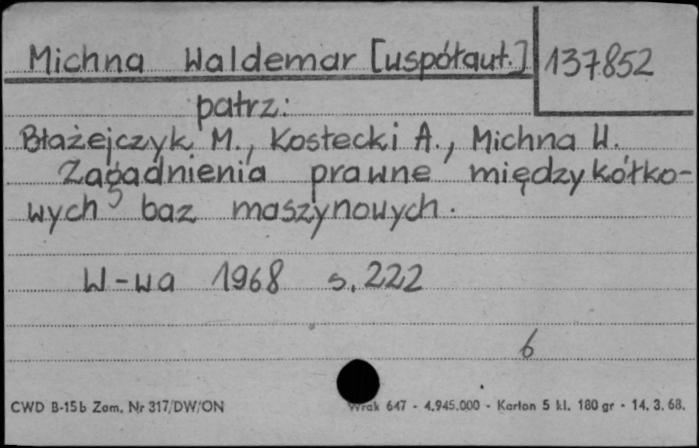 Michna Waldemar [współaut.] 137852
patrz:
Błażejczyk M., Kostecki A., Michna W.
Zagadnienia prawne międzykółko-
wych baz maszynowych.
W-wa 1968 s. 222
6
CWD B-15b Zam. Nr 317/DW/ON Wrak 647 - 4.945.000 - Karton 5 kl. 180 gr - 14. 3. 68.